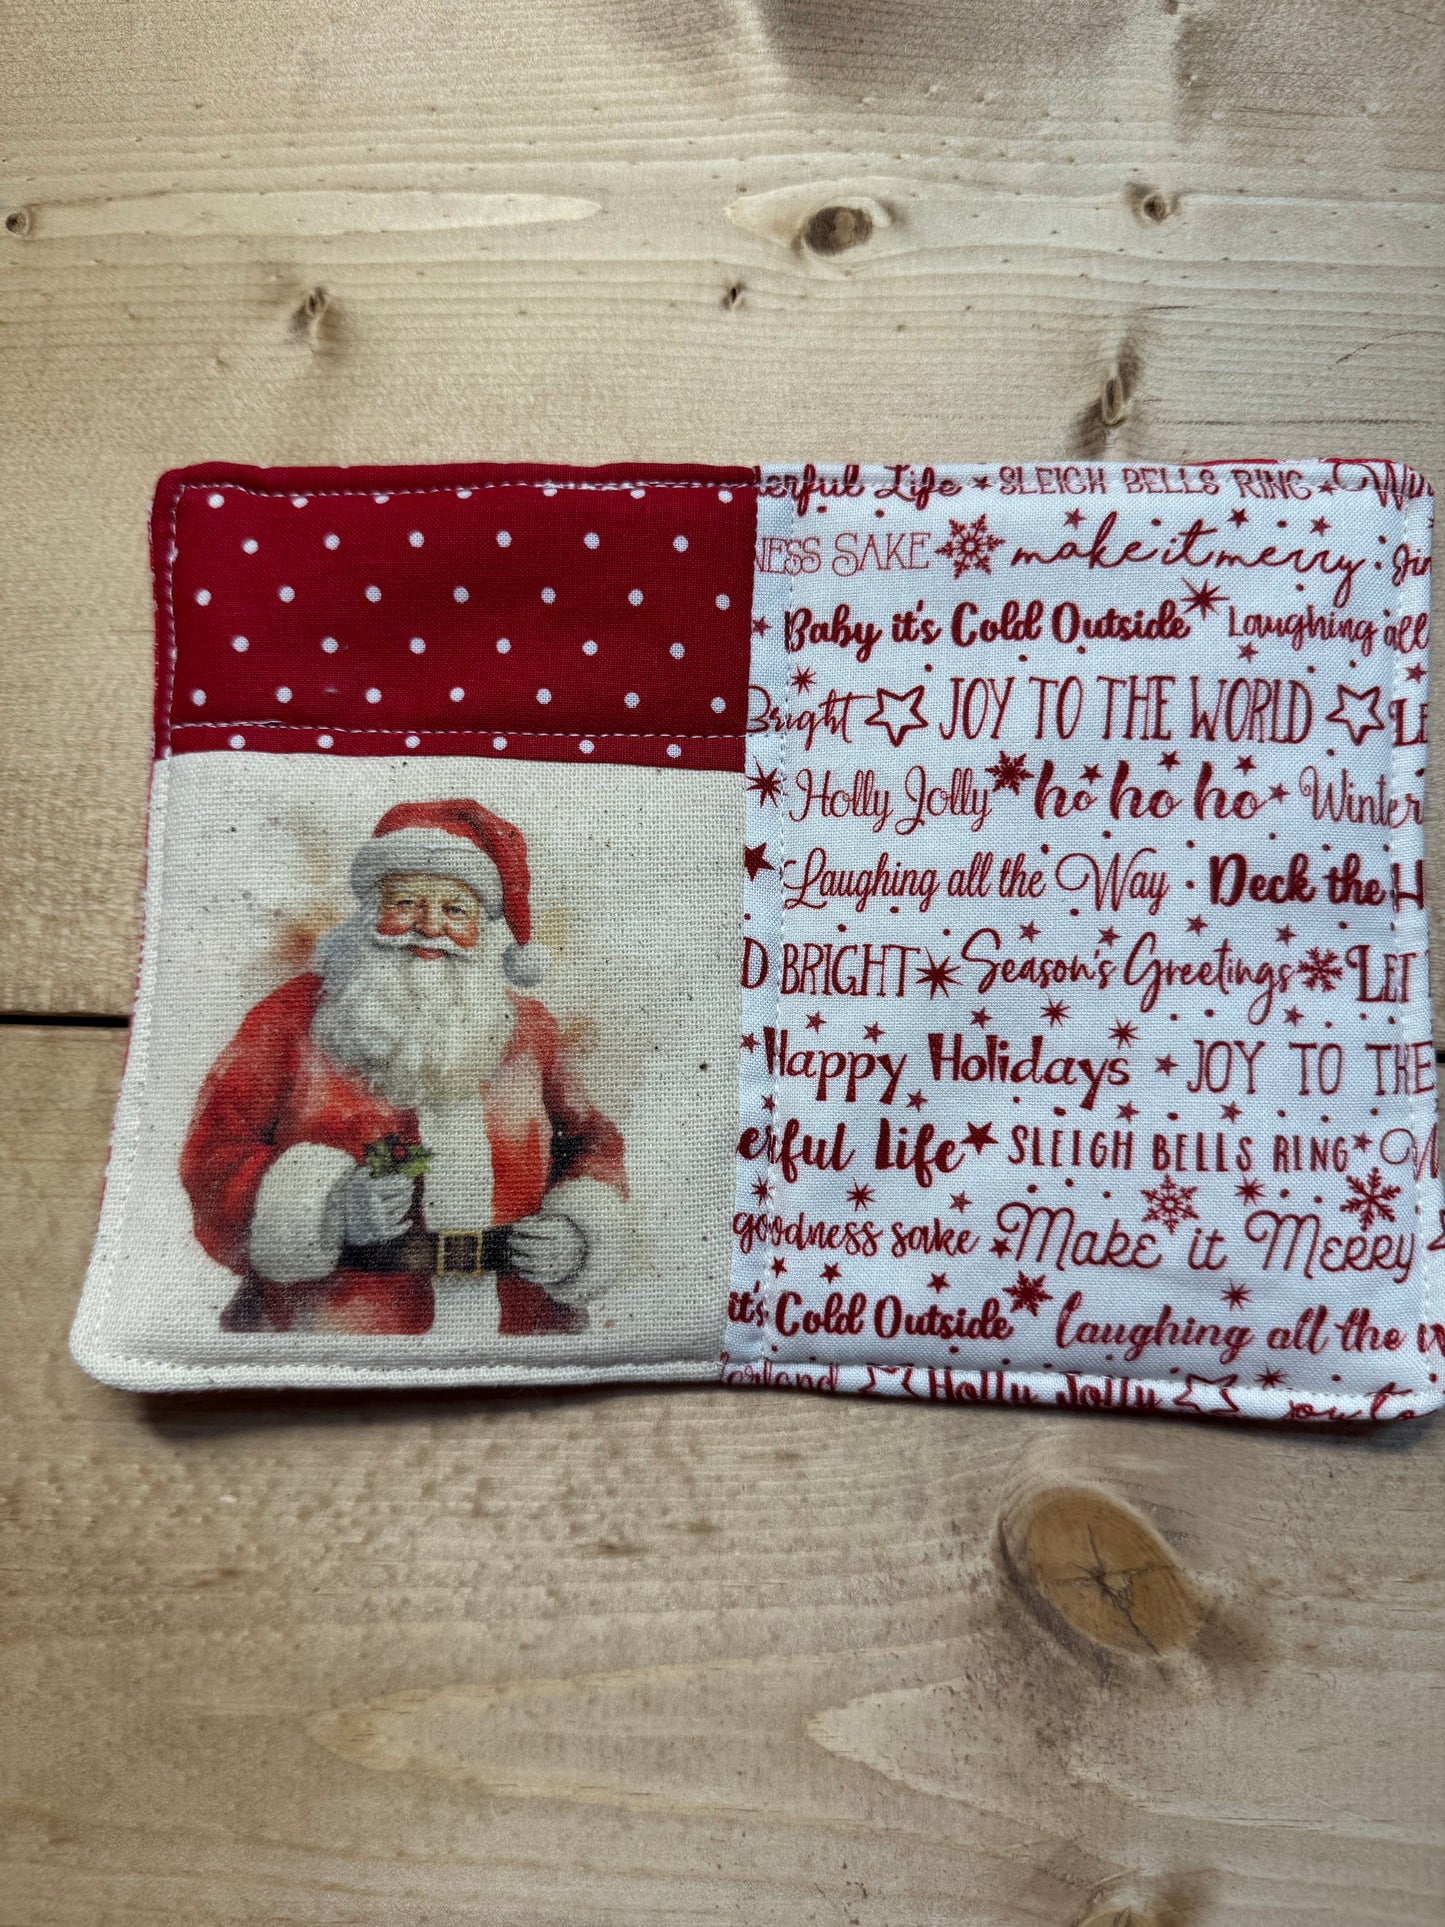 erful Life SLEIGH BELLS RING
NESS SAKE make it merry
Baby it's Cold Outside Laughing all
Bright JOY TO THE WORLD
Holly Jolly ho ho ho Winter
Laughing all the Way Deck the H
D BRIGHT Season's Greetings LET
Happy Holidays JOY TO THE
erful life SLEIGH BELLS RING
goodness sake Make it Merry
it's Cold Outside Laughing all the
erland Holly Jolly Joy to